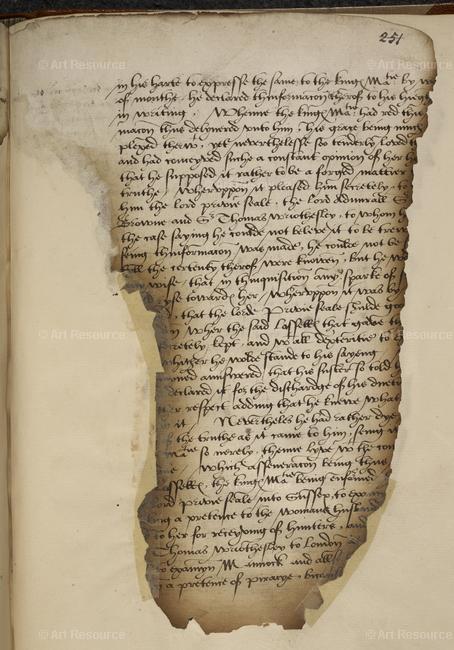 251
in his harte to expresse the same to the kinges Matie by w
of mouthe, he declared thinformacon therof to his hieg
in writing. Whenne the kinges Matie had red this
macon thus delyuered vnto him, his grace being muche
plexed therwt, yet neverthelesse soo tenderly loved t
and had conceyved suche a constant opinion of her ho
that he supposed it rather to be a forged mattier
truthe. Wheruppon it pleased him secretely, to
him the lord privie seale, the lord Admirall Sr
Browne and Sr Thomas wriothesley, to whom h
the case saying he coulde not beleve it to be trew
seing thinformacon was made, he coulde not be
till the certenty therof were knowen, but he w
wise, that in thinquisition any sparke of
ise toward her. Wheruppon it was by
, that the lorde Privie seale shulde go
n wher the said Lassells that gave th
cretely kept, and wt all dexteritie to
whither he wolde stande to his sayeng
answered, that his suster so told
declared it for the dischardge of his duetie
er respect adding that he knewe what
it. Nevertheles he had rather dye
the truthe as it came to him, seing it
so nerely, thenne lyve wt the con
e. Which asseveracon being thus
assells, the kinges Matie being enformed
ord Privie seale into Sussex, to exam
ing a pretence to the womans husband
to her for receyving of hunters, and
Thomas wriothesley to London
to examyn Mannock and also
a pretence of pyracye, bicause
© Art Resource
© Art Resource
© Art Resource
© Art Resource
© Art Resource
© Art Resource